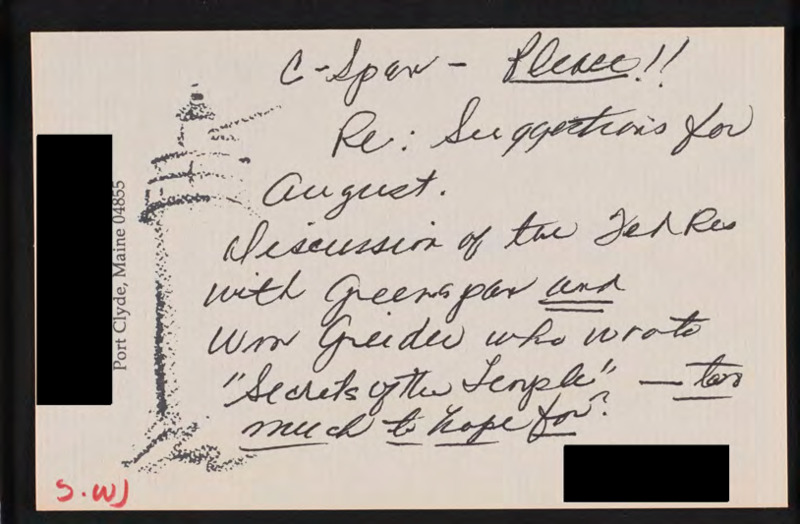 C-Span - Please!!
Re: Suggestions for
August.
Discussion of the Fed Res
with Greenspan and
Wm Greider who wrote
"Secrets of the Temple" — too
much to hope for?
Port Clyde, Maine 04855
S. WJ